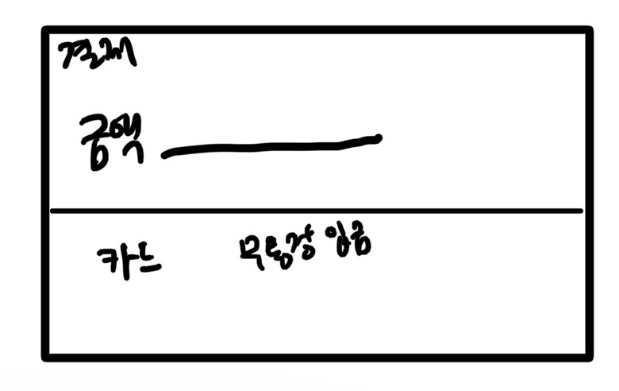 결제
금액
카드 무통장 입금